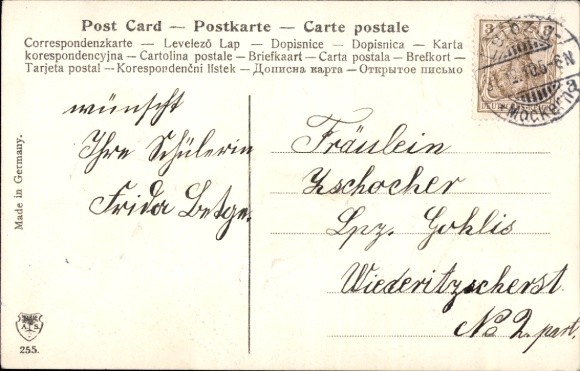 Post Card — Postkarte — Carte postale
Correspondenzkarte — Levelező Lap — Dopisnice — Dopisnica — Karta
korespondencyjna — Cartolina postale — Briefkaart — Carta postala — Brefkort —
Tarjeta postal — Korespondenční lístek — Дописна карта — Открытое письмо
3
wünscht
Ihre Schülerin
Frida Betge.
Fräulein
Zschocher
Lpz. Gohlis
Wiederitzscherst
No 2. part.
Made in Germany.
A.S.
255.